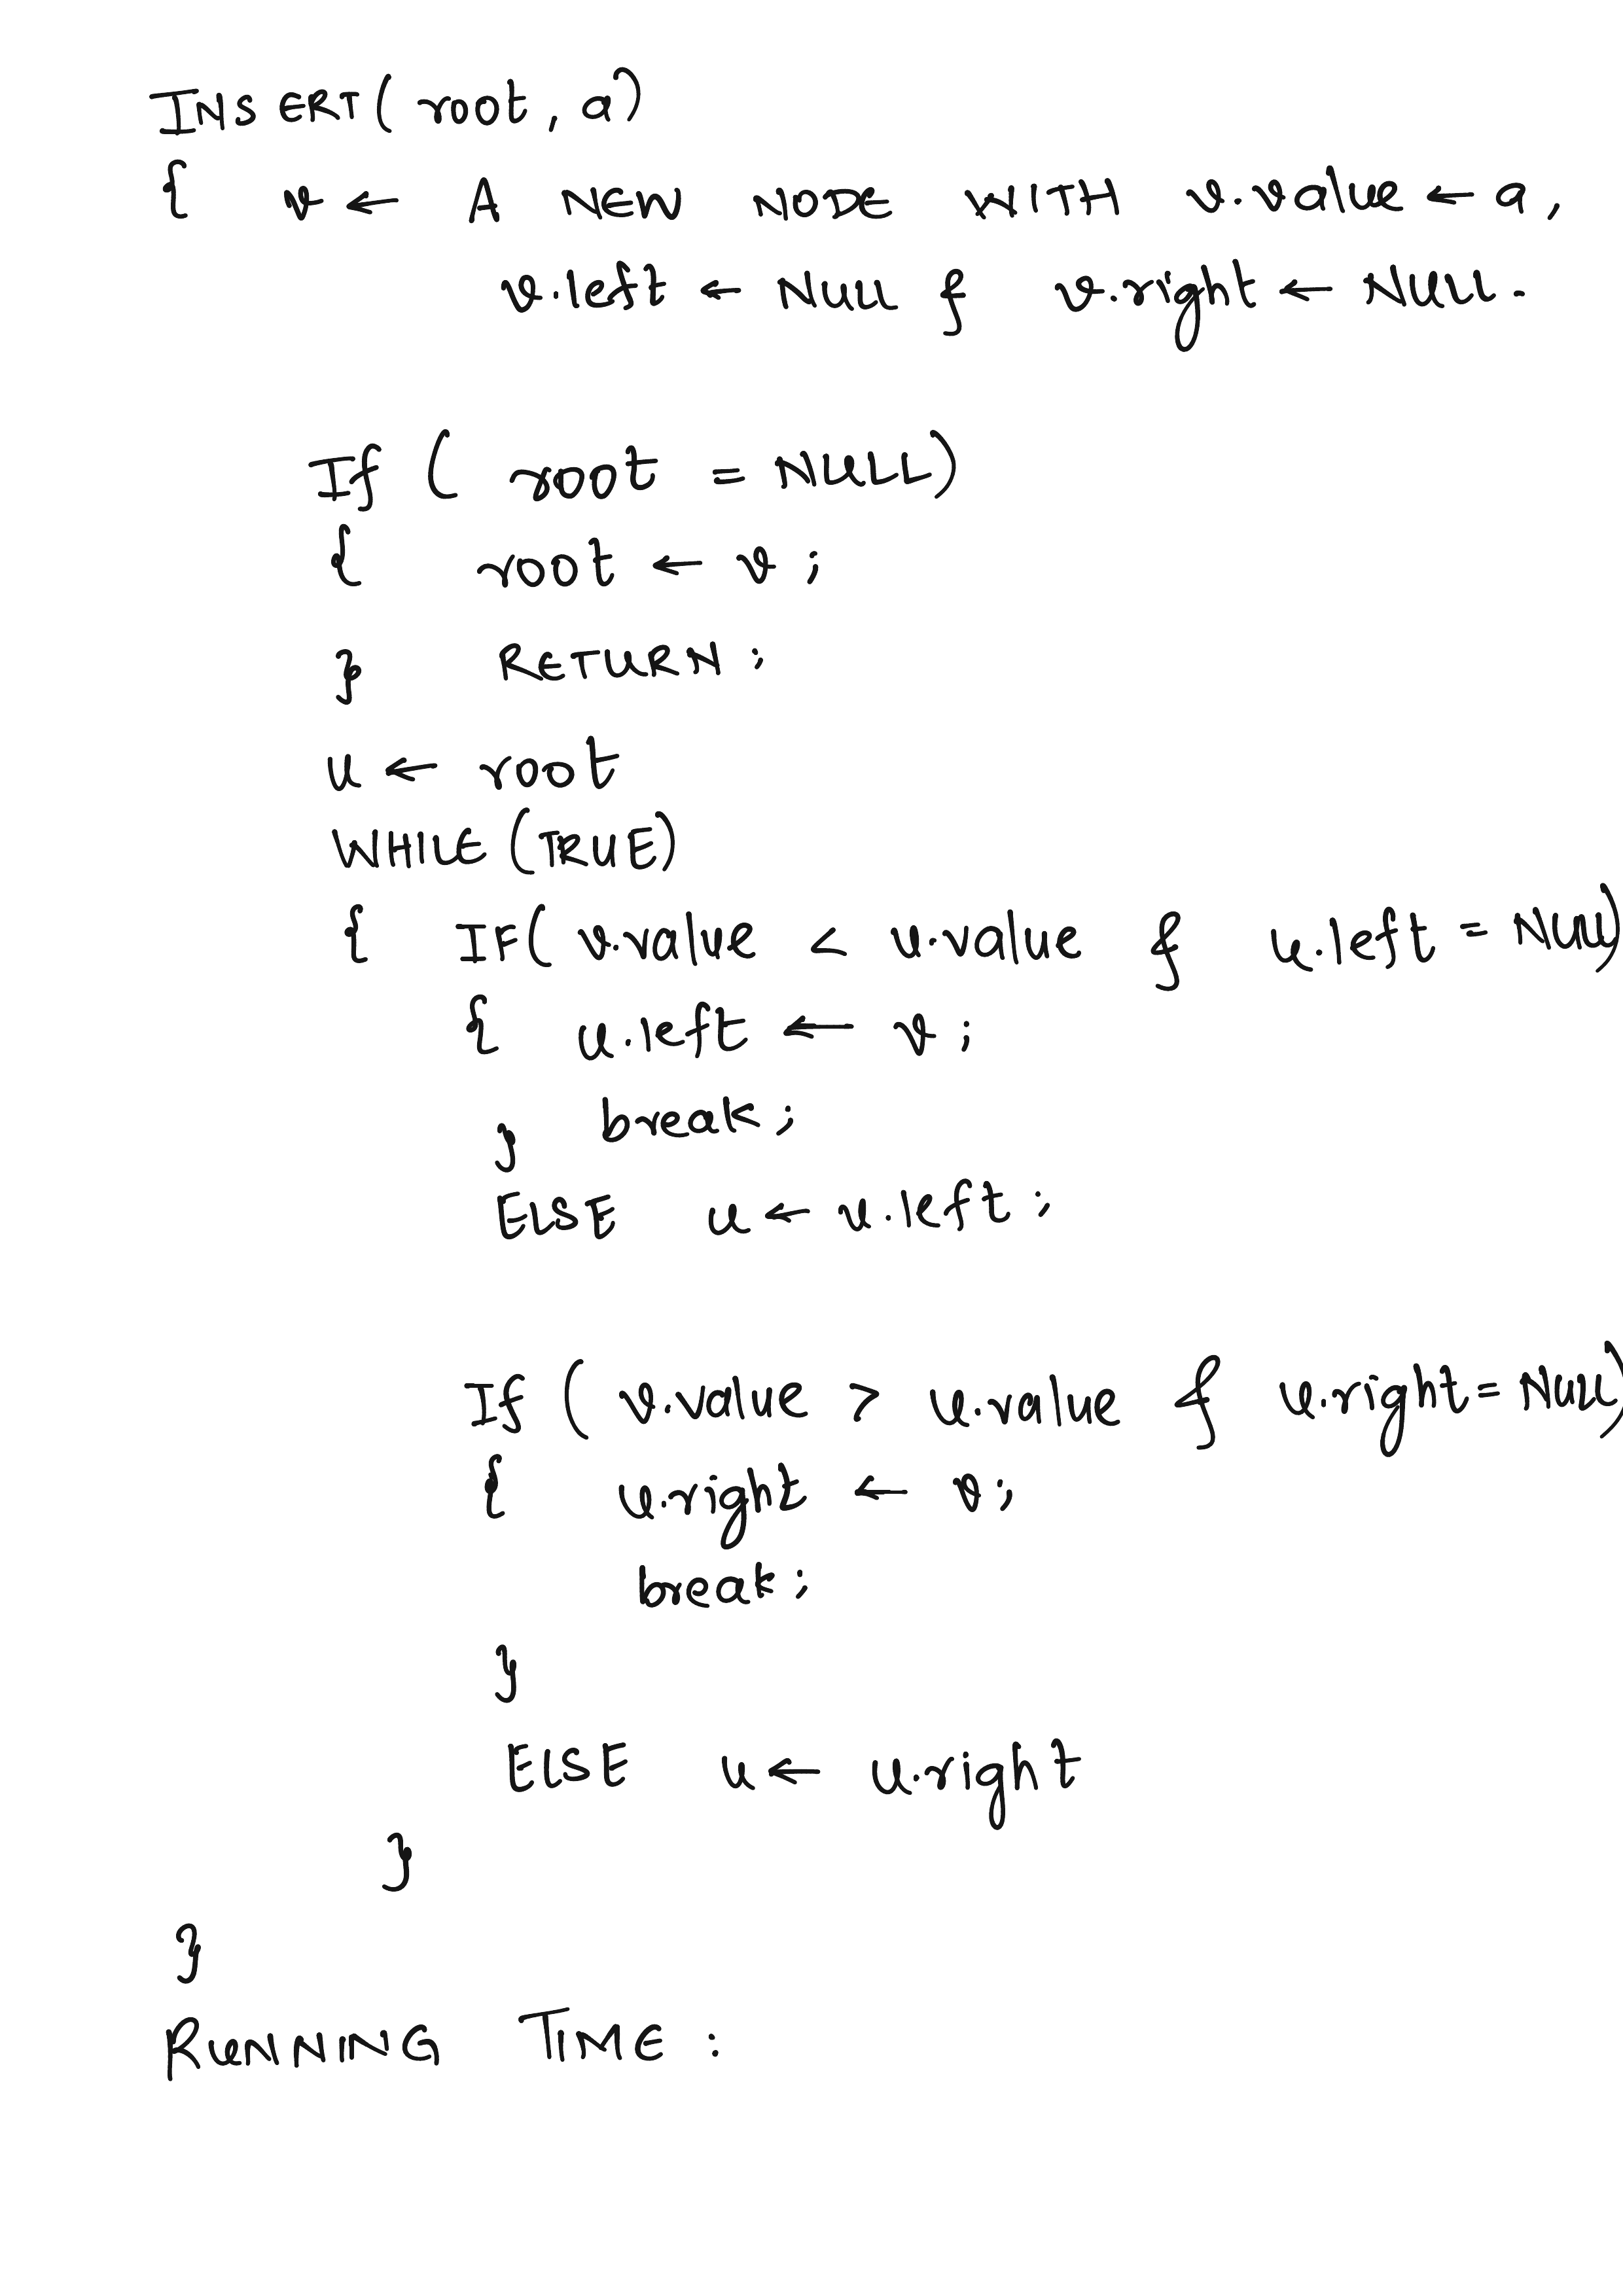 INSERT( root, a)
{ v ← A NEW NODE WITH v.value ← a,
v.left ← NULL & v.right ← NULL.
If ( root = NULL)
{ root ← v ;
} RETURN ;
u ← root
WHILE (TRUE)
{ IF( v.value < u.value & u.left = NULL)
{ u.left ← v ;
} break ;
ELSE u ← u.left ;
If ( v.value > u.value & u.right = NULL)
{ u.right ← v ;
break ;
}
ELSE u ← u.right
}
}
RUNNING TIME :